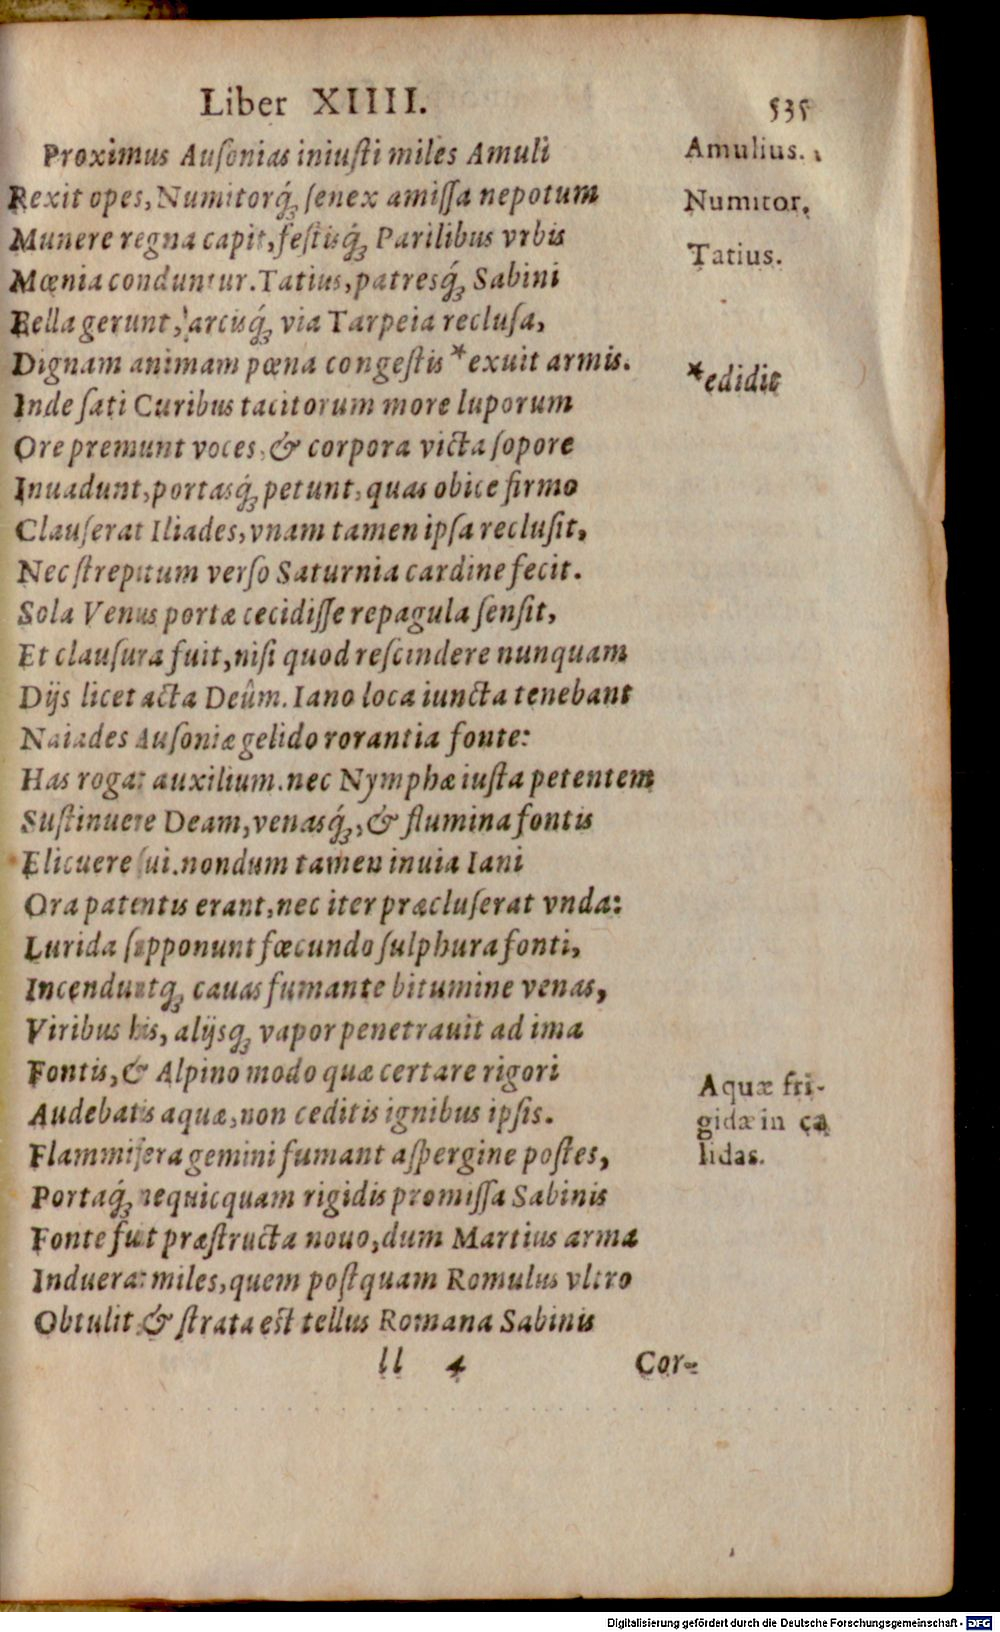 Liber XIIII. 535
Proximus Auſonias iniuſti miles Amuli
Amulius.
Rexit opes, Numitorq́ꝫ ſenex amiſſa nepotum
Numitor.
Munere regna capit, feſtisq́ꝫ Parilibus vrbis
Mœnia conduntur. Tatius, patresq́ꝫ Sabini
Tatius.
Bella gerunt, arcisq́ꝫ via Tarpeia recluſa,
Dignam animam pœna congeſtis *exuit armis.
*edidit
Inde ſati Curibus tacitorum more luporum
Ore premunt voces, & corpora victa ſopore
Inuadunt, portasq́ꝫ petunt, quas obice firmo
Clauſerat Iliades, vnam tamen ipſa recluſit,
Nec ſtrepitum verſo Saturnia cardine fecit.
Sola Venus portæ cecidiſſe repagula ſenſit,
Et clauſura fuit, niſi quod reſcindere nunquam
Dijs licet acta Deûm. Iano loca iuncta tenebant
Naiades Auſoniæ gelido rorantia fonte:
Has rogat auxilium. nec Nymphæ iuſta petentem
Suſtinuere Deam, venasq́ꝫ, & flumina fontis
Elicuere ſui. nondum tamen inuia Iani
Ora patentis erant, nec iter præcluſerat vnda:
Lurida ſupponunt fœcundo ſulphura fonti,
Incenduntqꝫ cauas fumante bitumine venas,
Viribus his, alijsqꝫ vapor penetrauit ad ima
Fontis, & Alpino modo quæ certare rigori
Audebatis aquæ, non ceditis ignibus ipſis.
Aquæ fri-
gidæ in ca
lidas.
Flammifera gemini fumant aſpergine poſtes,
Portaq́ꝫ nequicquam rigidis promiſſa Sabinis
Fonte fuit præſtructa nouo, dum Martius arma
Induerat miles, quem poſtquam Romulus vltro
Obtulit & ſtrata eſt tellus Romana Sabinis
ll 4 Cor-
Digitalisierung gefördert durch die Deutsche Forschungsgemeinschaft - DFG